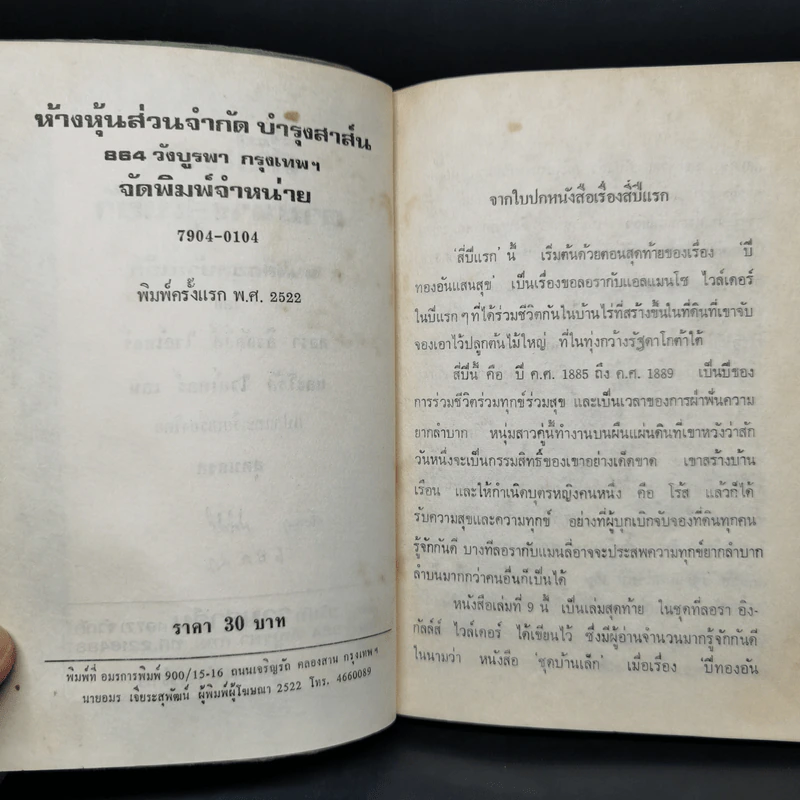 ห้างหุ้นส่วนจำกัด บำรุงสาส์น
864 วังบูรพา กรุงเทพฯ
จัดพิมพ์จำหน่าย
7904-0104
พิมพ์ครั้งแรก พ.ศ. 2522
ราคา 30 บาท
พิมพ์ที่ อมรการพิมพ์ 900/15-16 ถนนเจริญรัถ คลองสาน กรุงเทพฯ
นายอมร เจียระสุพัฒน์ ผู้พิมพ์ผู้โฆษณา 2522 โทร. 4660089
จากใบปกหนังสือเรื่องสี่ปีแรก
'สี่ปีแรก' นี้ เริ่มต้นด้วยตอนสุดท้ายของเรื่อง 'ปี
ทองอันแสนสุข' เป็นเรื่องของลอรากับแอลแมนโซ ไวล์เดอร์
ในปีแรกๆ ที่ได้ร่วมชีวิตกันในบ้านไร่ที่สร้างขึ้นในที่ดินที่เขาจับ
จองเอาไว้ปลูกต้นไม้ใหญ่ ที่ในทุ่งกว้างรัฐดาโกต้าใต้
สี่ปีนี้ คือ ปี ค.ศ. 1885 ถึง ค.ศ. 1889 เป็นปีของ
การร่วมชีวิตร่วมทุกข์ร่วมสุข และเป็นเวลาของการฝ่าฟันความ
ยากลำบาก หนุ่มสาวคู่นี้ทำงานบนผืนแผ่นดินที่เขาหวังว่าสัก
วันหนึ่งจะเป็นกรรมสิทธิ์ของเขาอย่างเด็ดขาด เขาสร้างบ้าน
เรือน และให้กำเนิดบุตรหญิงคนหนึ่ง คือ โร้ส แล้วก็ได้
รับความสุขและความทุกข์ อย่างที่ผู้บุกเบิกจับจองที่ดินทุกคน
รู้จักกันดี บางทีลอรากับแมนลี่อาจจะประสพความทุกข์ยากลำบาก
ลำบนมากกว่าคนอื่นก็เป็นได้
หนังสือเล่มที่ 9 นี้ เป็นเล่มสุดท้าย ในชุดที่ลอรา อิง-
กัลล์ส์ ไวล์เดอร์ ได้เขียนไว้ ซึ่งมีผู้อ่านจำนวนมากรู้จักกันดี
ในนามว่า หนังสือ 'ชุดบ้านเล็ก' เมื่อเรื่อง 'ปีทองอัน